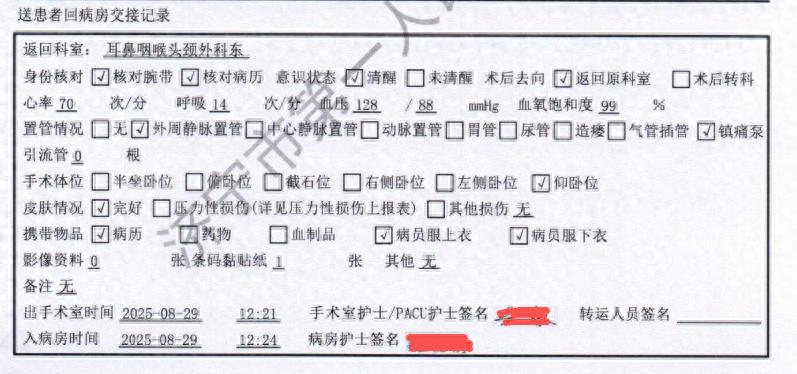 送患者回病房交接记录
返回科室： 耳鼻咽喉头颈外科东
身份核对 ☑核对腕带 ☑核对病历 意识状态 ☑清醒 □未清醒 术后去向 ☑返回原科室 □术后转科
心率 70 次/分 呼吸 14 次/分 血压 128 / 88 mmHg 血氧饱和度 99 %
置管情况 □无 ☑外周静脉置管 □中心静脉置管 □动脉置管 □胃管 □尿管 □造瘘 □气管插管 ☑镇痛泵
引流管 0 根
手术体位 □半坐卧位 □俯卧位 □截石位 □右侧卧位 □左侧卧位 ☑仰卧位
皮肤情况 ☑完好 □压力性损伤(详见压力性损伤上报表) □其他损伤 无
携带物品 ☑病历 □药物 □血制品 ☑病员服上衣 ☑病员服下衣
影像资料 0 张 条码黏贴纸 1 张 其他 无
备注 无
出手术室时间 2025-08-29 12:21 手术室护士/PACU护士签名 转运人员签名
入病房时间 2025-08-29 12:24 病房护士签名
济宁市第一人